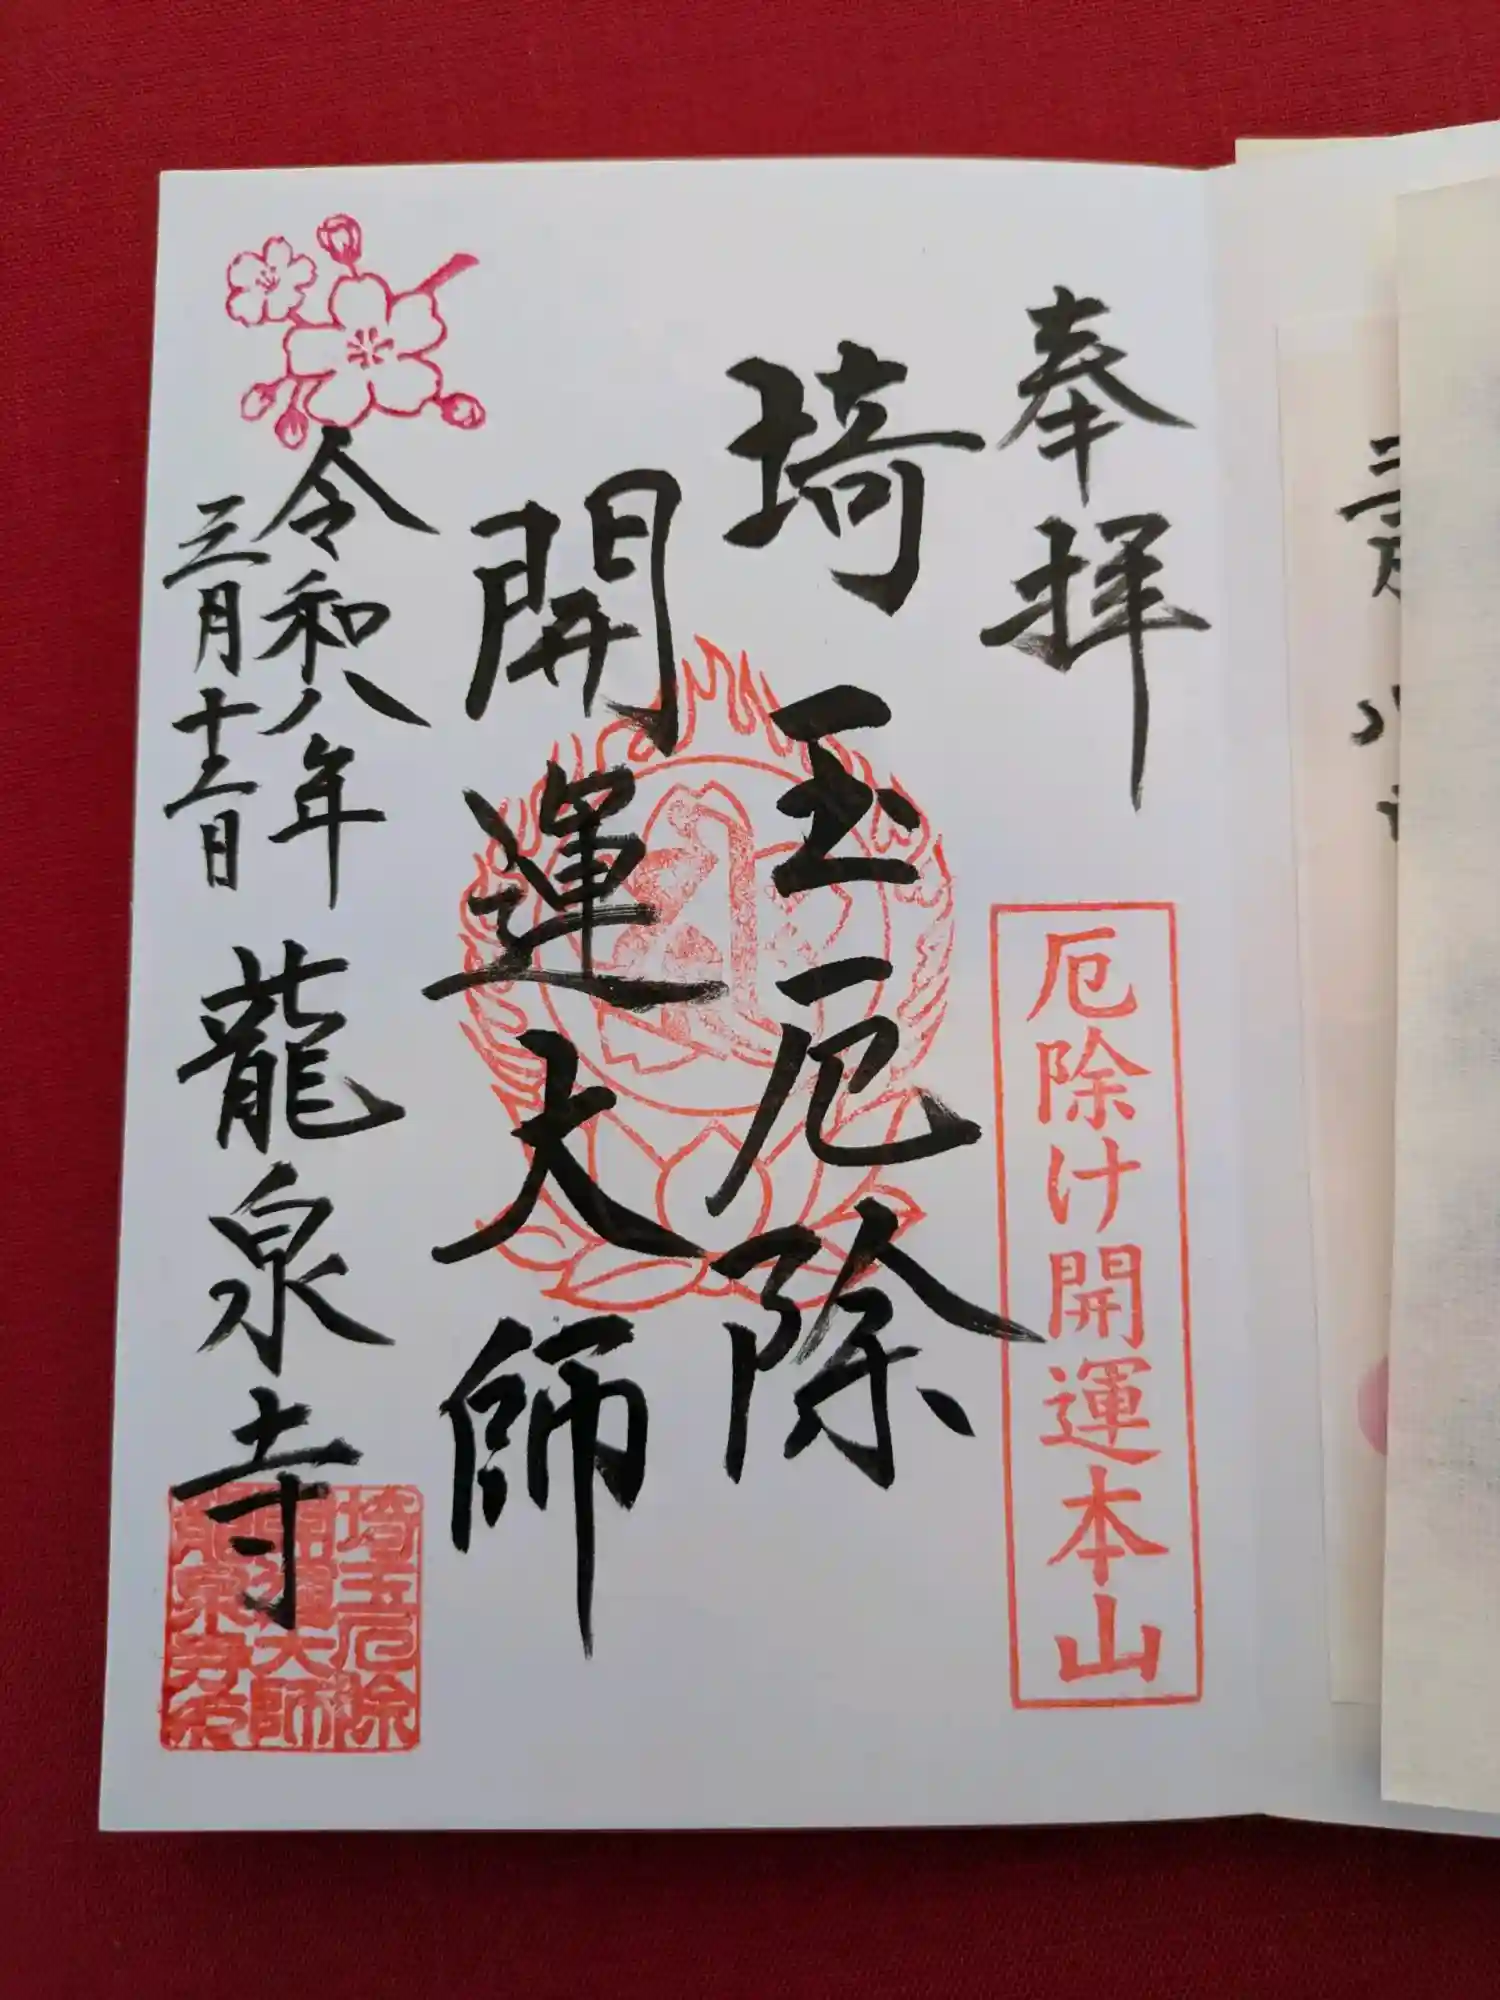 奉拝
厄除け開運本山
埼玉厄除
開運大師
令和八年
三月十三日
龍泉寺
埼玉厄除
開運大師
龍泉寺